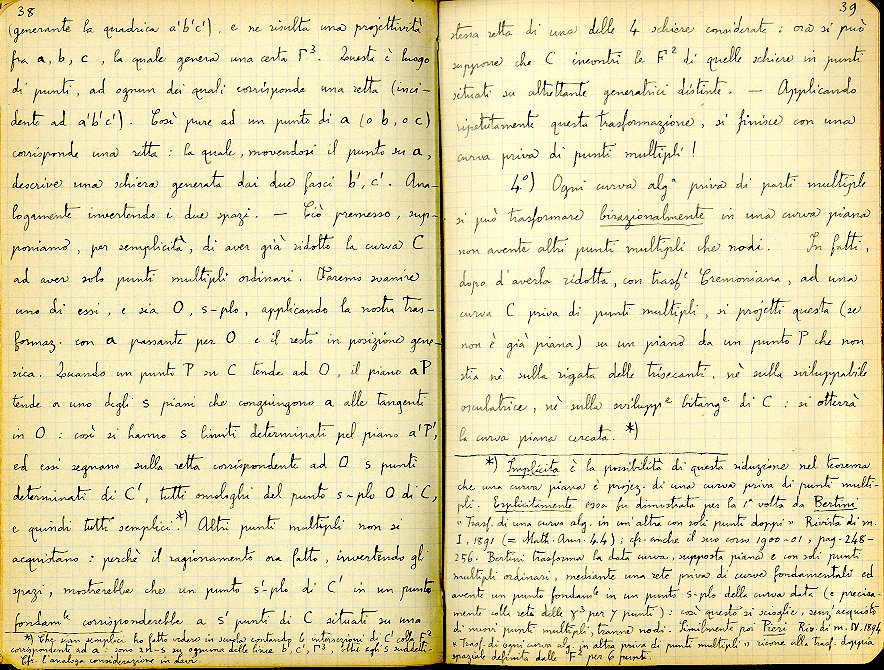 38
(generante la quadrica a'b'c'), e ne risulta una projettività
fra a, b, c, la quale genera una certa Γ³. Questa è luogo
di punti, ad ognun dei quali corrisponde una retta (inci-
dente ad a'b'c'). Così pure ad un punto di a (o b, o c)
corrisponde una retta: la quale, movendosi il punto su a,
descrive una schiera generata dai due fasci b', c'. Ana-
logamente invertendo i due spazi. — Ciò premesso, sup-
poniamo, per semplicità, di aver già ridotto la curva C
ad aver solo punti multipli ordinari. Faremo svanire
uno di essi, e sia O, s-plo, applicando la nostra tras-
formaz. con a passante per O e il resto in posizione gene-
rica. Quando un punto P su C tende ad O, il piano aP
tende a uno degli s piani che congiungono a alle tangenti
in O: così si hanno s limiti determinati pel piano a'P',
ed essi segnano sulla retta corrispondente ad O s punti
determinati di C', tutti omologhi del punto s-plo O di C,
e quindi tutti semplici.*) Altri punti multipli non si
acquistano: perchè il ragionamento ora fatto, invertendo gli
spazi, mostrerebbe che un punto s'-plo di C' in un punto
fondamˡᵉ corrisponderebbe a s' punti di C situati su una
*) Che sian semplici ho fatto vedere in scuola contando le intersezioni di C' colla F²
corrispondente ad a: sono 2n-s su ognuna delle linee b', c', Γ'³, oltre agli s suddetti.
Cfr. l'analoga considerazione in
39
stessa retta di una delle 4 schiere considerate: ora si può
supporre che C incontri le F² di quelle schiere in punti
situati su altrettante generatrici distinte. — Applicando
ripetutamente questa trasformazione, si finisce con una
curva priva di punti multipli!
4º) Ogni curva algᵃ priva di parti multiple
si può trasformare birazionalmente in una curva piana
non avente altri punti multipli che nodi. In fatti,
dopo d'averla ridotta, con trasfᵉ Cremoniana, ad una
curva C priva di punti multipli, si projetti questa (se
non è già piana) su un piano da un punto P che non
stia nè sulla rigata delle trisecanti, nè sulla sviluppabile
osculatrice, nè sulla sviluppᵉ bitangᵉ di C: si otterrà
la curva piana cercata. *)
*) Implicita è la possibilità di questa riduzione nel teorema
che una curva piana è projez. di una curva priva di punti multi-
pli. Esplicitamente essa fu dimostrata per la 1ᵃ volta da Bertini
« Trasf. di una curva alg. in un'altra con soli punti doppi » Rivista di m.
I, 1891 (= Math. Ann. 44); cfr. anche il suo corso 1900-01, pag. 248-
256. Bertini trasforma la data curva, supposta piana e con soli punti
multipli ordinari, mediante una rete priva di curve fondamentali ed
avente un punto fondamˡᵉ in un punto s-plo della curva data (e precisa-
mente colla rete delle γ³ per 7 punti): così questo si scioglie, senz'acquisto
di nuovi punti multipli, tranne nodi. Similmente poi Pieri Riv. di m. IV. 1894
« Trasf. di ogni curva alg. in altra priva di punti multipli » ricorre alla trasf. doppia
spaziale definita dalle F² per 6 punti.